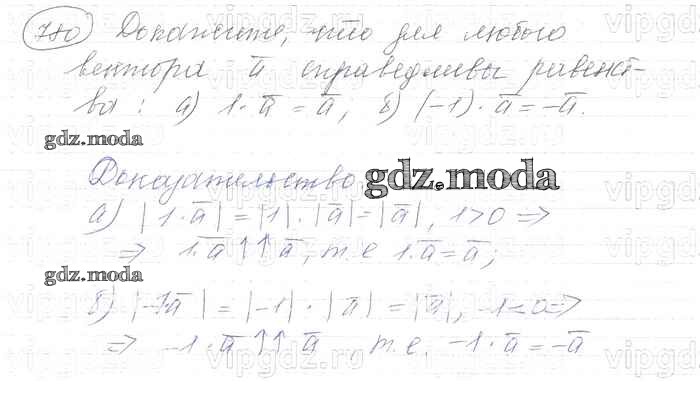 780 Докажите, что для любого
вектора a̅ справедливы равенст-
ва: а) 1·a̅ = a̅; б) (-1)·a̅ = -a̅.
gdz.moda
Доказательство.
gdz.moda
а) |1·a̅| = |1|·|a̅| = |a̅|, 1>0 =>
=> 1·a̅ ↑↑ a̅, т.е 1·a̅ = a̅;
gdz.moda
б) |-1a̅| = |-1|·|a̅| = |a̅|, -1<0=>
=> -1·a̅ ↑↑ a̅, т.е. -1·a̅ = -a̅
vipgdz.ru